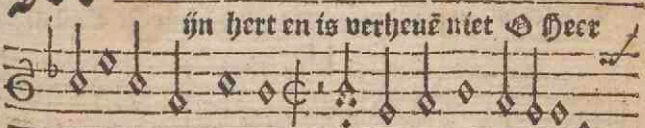 ijn hert en is verheuē niet O Heer